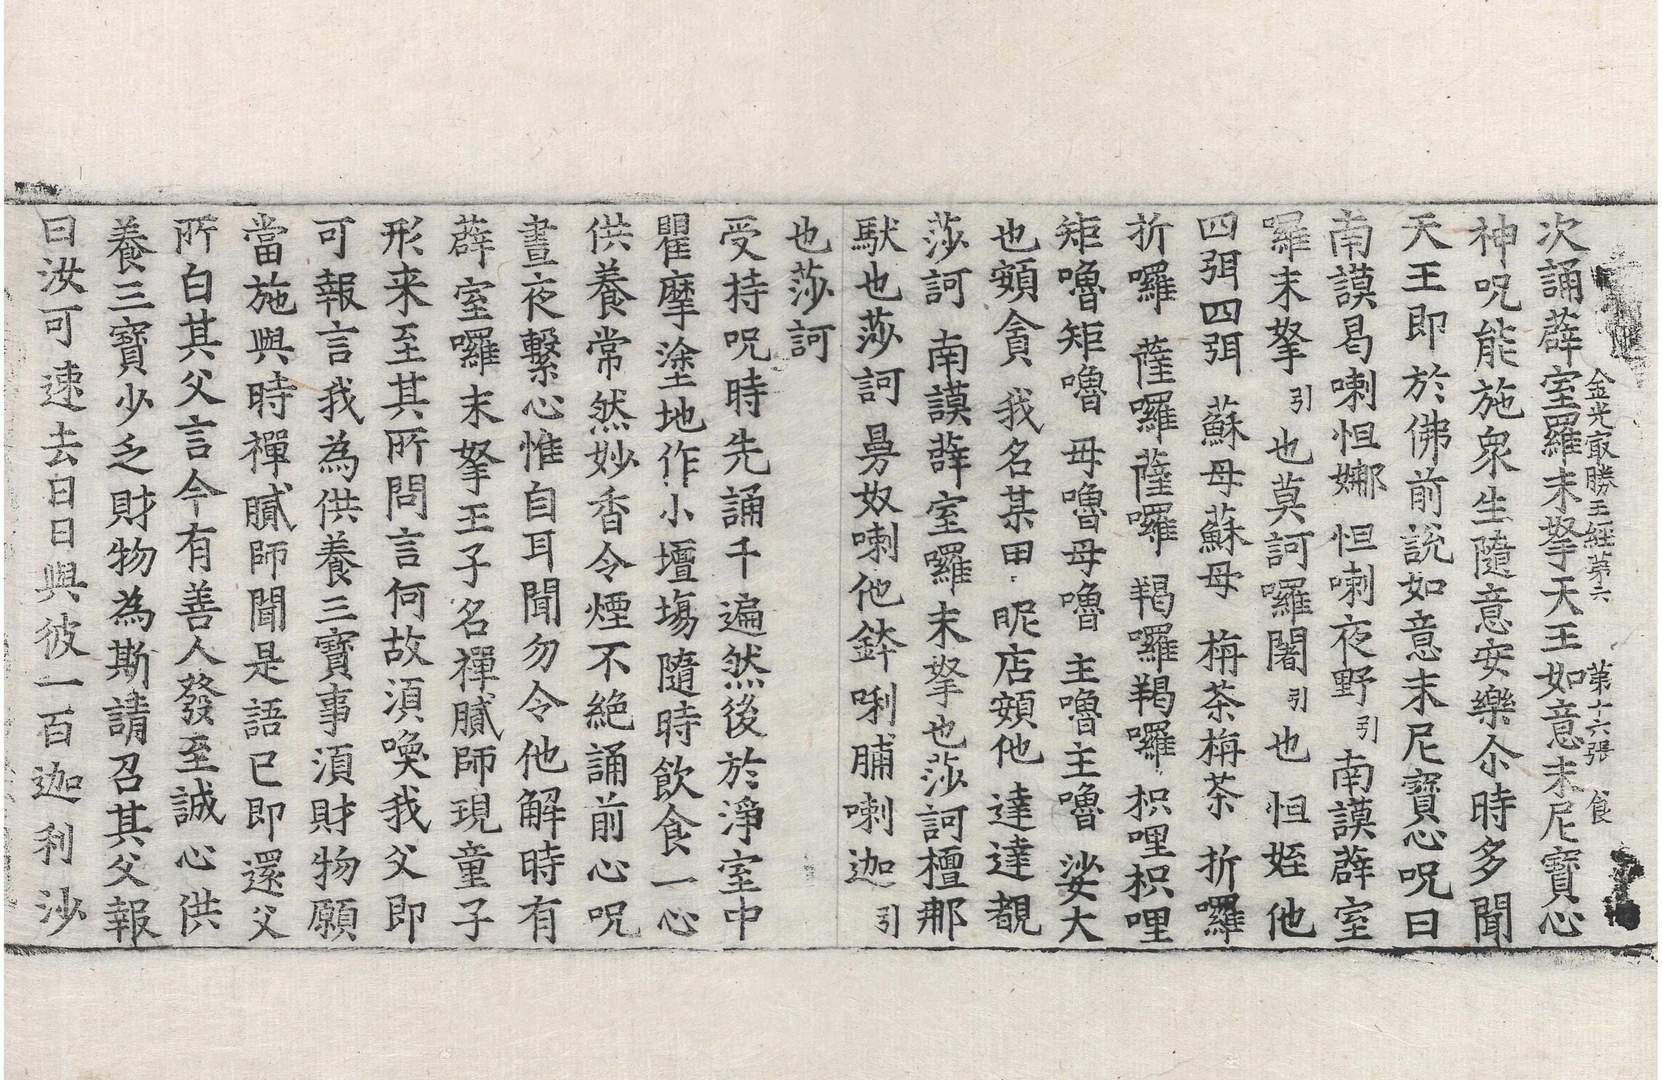 金光㝡勝王經第六 第十六張 食
次誦薜室羅末拏天王如意末尼寶心
神呪能施衆生隨意安樂尒時多聞
天王即於佛前説如意末尼寶心呪曰
南謨曷喇怛娜 怛喇夜野引 南謨薜室
囉末拏引也莫訶囉闍引也 怛姪他
四弭四弭 蘇母蘇母 栴茶栴茶 折囉
折囉 薩囉薩囉 羯囉羯囉 枳哩枳哩
矩嚕矩嚕 母嚕母嚕 主嚕主嚕 娑大
也頞貪 我名某甲 昵店頞他 達達覩
莎訶 南謨薜室囉末拏也莎訶檀那
馱也莎訶 曼奴喇他鉢唎脯喇迦引
也莎訶
受持呪時先誦千遍然後於淨室中
瞿摩塗地作小壇塲隨時飲食一心
供養常然妙香令煙不絶誦前心呪
晝夜繫心惟自耳聞勿令他解時有
薜室囉末拏王子名禪膩師現童子
形来至其所問言何故湏喚我父即
可報言我為供養三寶事湏財物願
當施與時禪膩師聞是語已即還父
所白其父言今有善人發至誠心供
養三寶少乏財物為斯請召其父報
曰汝可速去日日與彼一百迦利沙